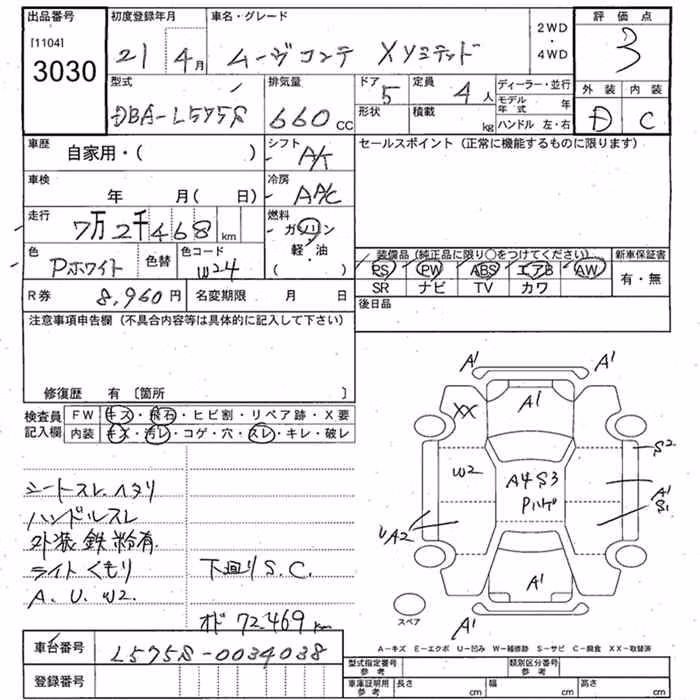 出品番号 初度登録年月 車名・グレード 2WD・4WD 評価点
[1104] 3030 21 4月 ムーヴコンテ Xリミテッド 3
型式 排気量 ドア 定員 ディーラー・並行 外装 内装
DBA-L575S 660cc 5 4人 モデル年式 年 D C
形状 積載 kg ハンドル 左・右
車歴 自家用・( ) シフト A/K セールスポイント (正常に機能するものに限ります)
車検 年 月( 日) 冷房 AA/C
走行 7万2千468km 燃料 ガソリン・軽・油 ( )
色 Pホワイト 色替 色コード W24
装備品 (純正品に限り○をつけてください) 新車保証書
PS PW ABS エアB AW 有・無
SR ナビ TV カワ
R券 8,960円 名変期限 月 日 後日品
注意事項申告欄 (不具合内容等は具体的に記入して下さい)
修復歴 有 〔箇所 〕
検査員記入欄 FW キズ・飛石・ヒビ割・リペア跡・X要
内装 キズ・汚レ・コゲ・穴・スレ・キレ・破レ
シートスレ ヘタリ
ハンドルスレ
外装 鉄粉有
ライトくもり 下廻りS.C.
A.U.W2.
オド72,469km
A1 A1
XX A1
S2
W2 A4 S3 A1
Pハゲ S1
UA2
A1
A1
スペア
A－キズ E－エクボ U－凹み W－補修跡 S－サビ C－腐食 XX－取替済
車台番号 L575S-0034038
登録番号
型式指定番号 参考 類別区分番号 参考
車庫証明用 参考 長さ cm 幅 cm 高さ cm